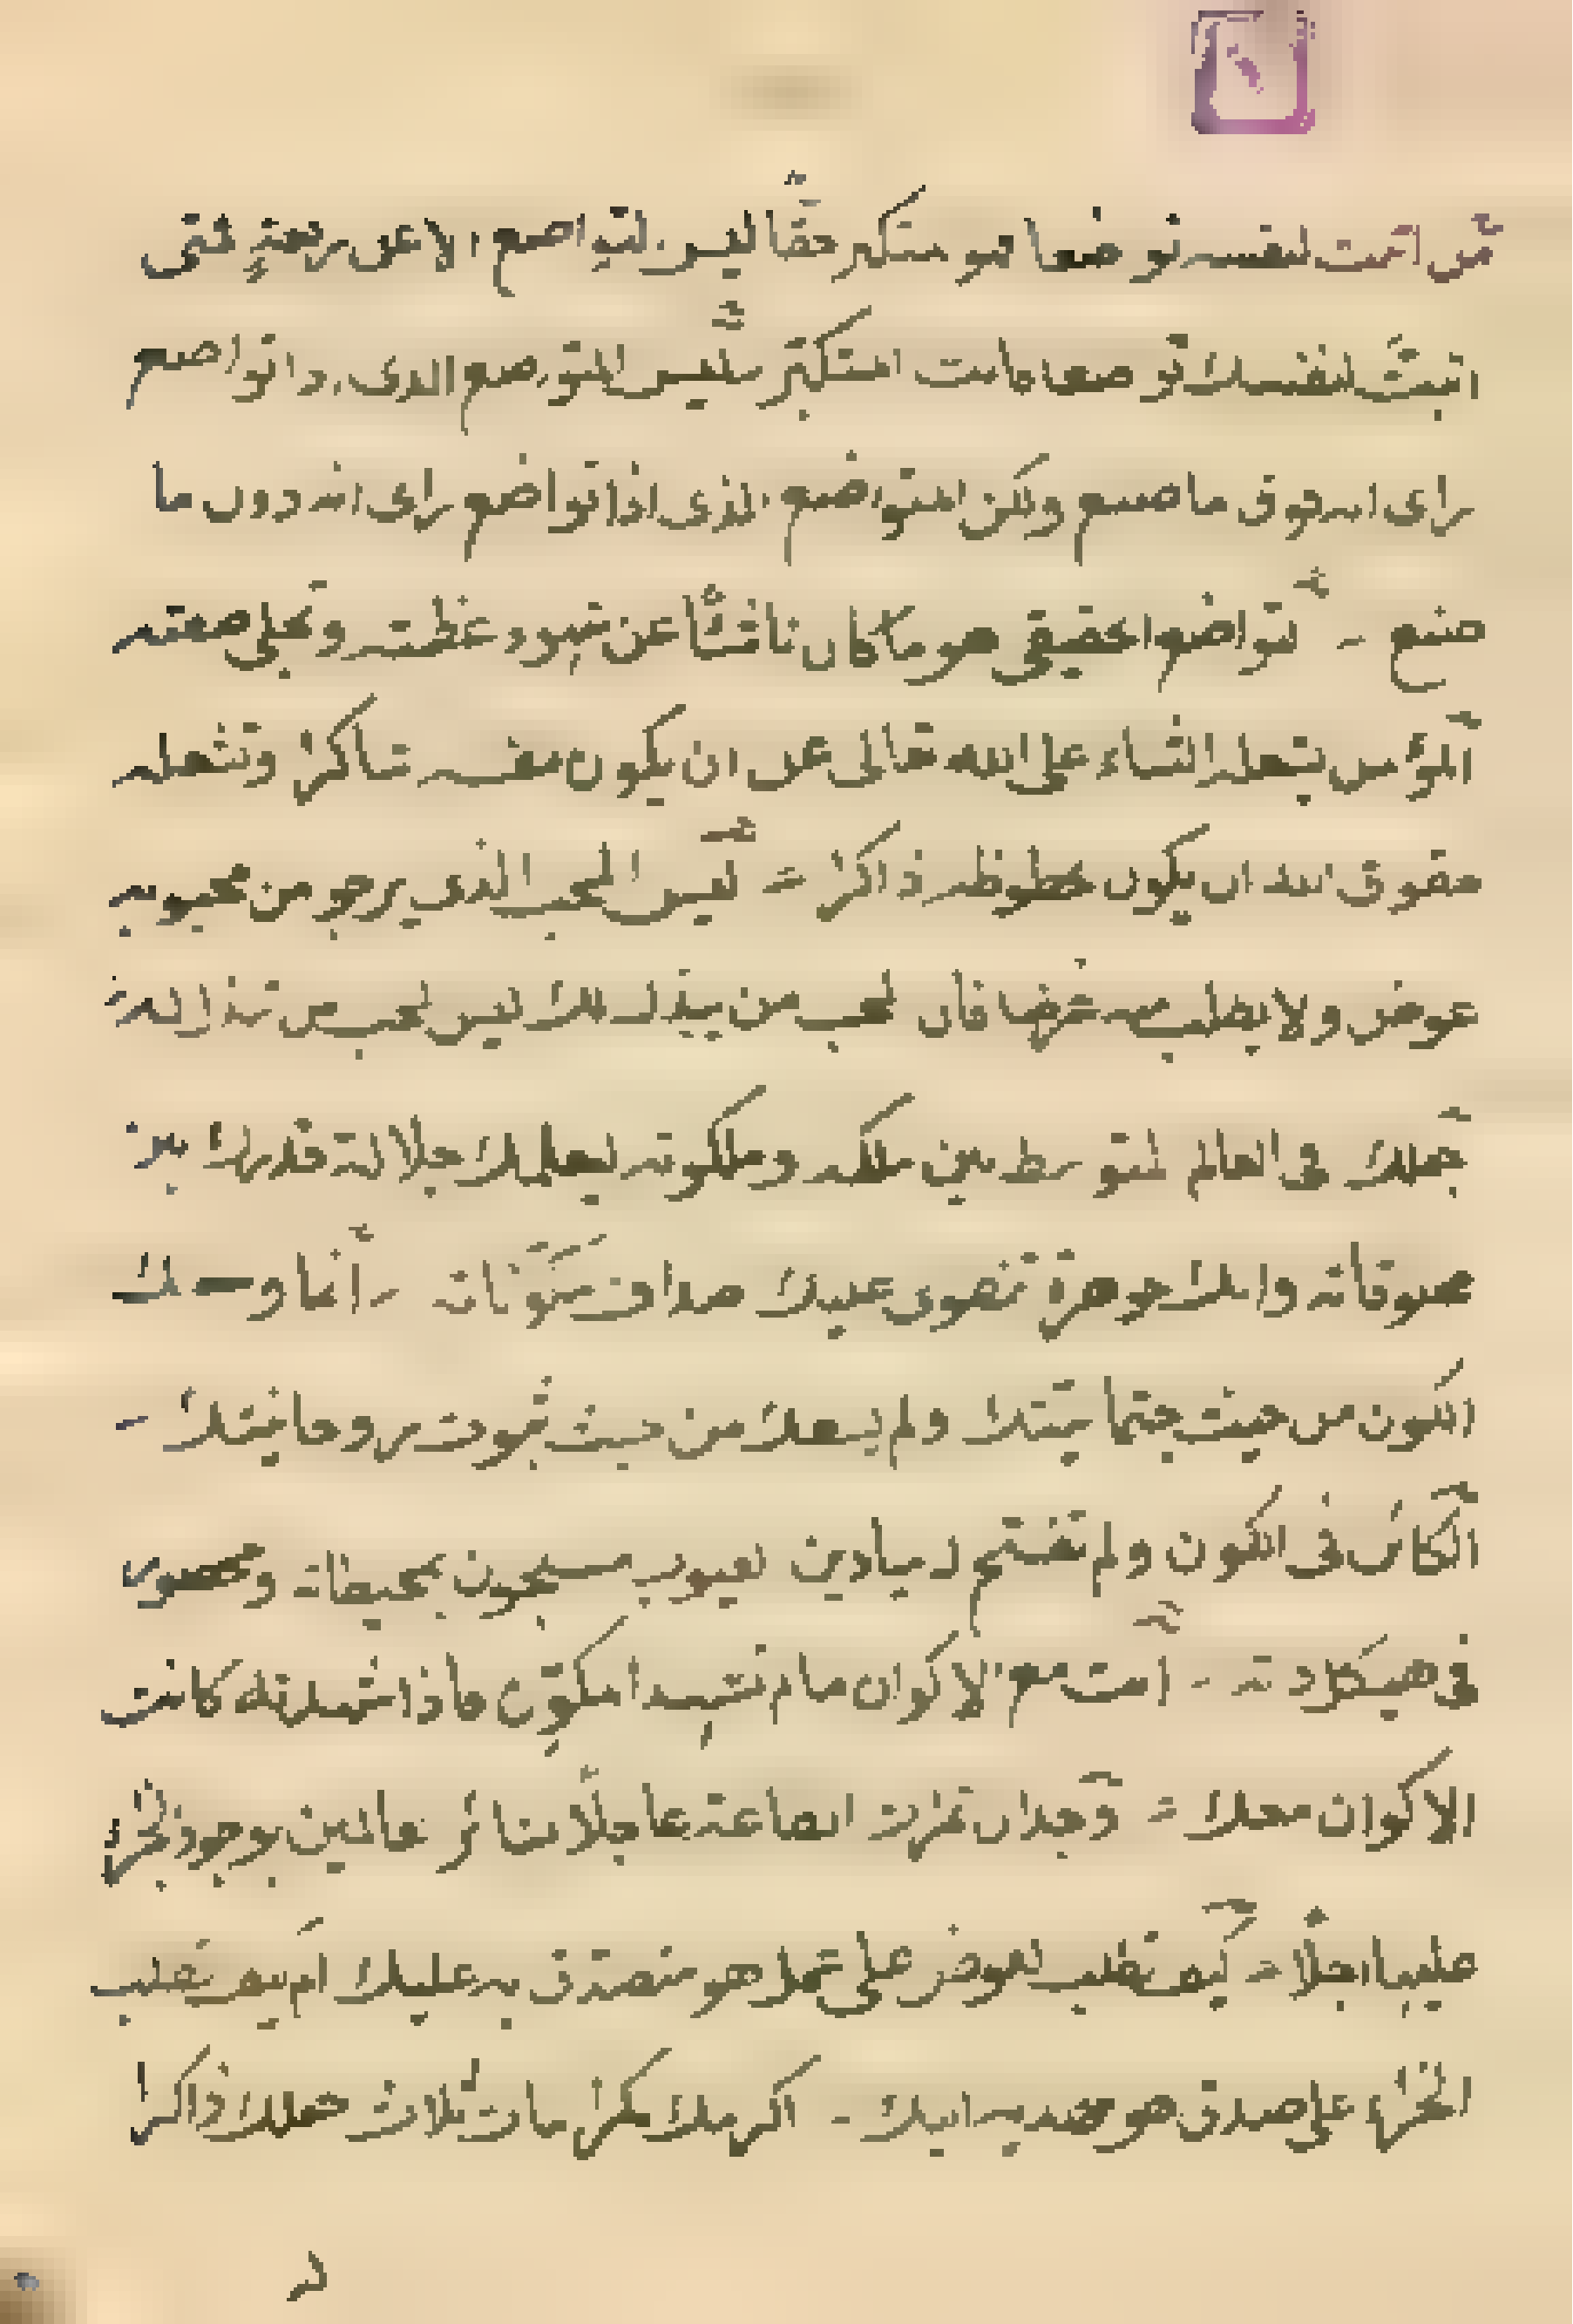 من اثبت لنفسه تواضعا فهو متكبر حقا ليس التواضع الا عن رفعة فمتى
اثبت لنفسك تواضعا فانت المتكبر ليس المتواضع الذى اذا تواضع
راى انه فوق ما صنع ولكن المتواضع الذى اذا تواضع راى انه دون ما
صنع التواضع الحقيقى هو ما كان ناشئا عن شهود عظمته وتجلى صفته
المؤمن يشغله الثناء على الله تعالى عن ان يكون لنفسه شاكرا وتشغله
حقوق الله ان يكون لحظوظه ذاكرا ليس المحب الذى يرجو من محبوبه
عوض ولا يطلب منه غرضا فان المحب من يبذل لك ليس المحب من تبذل له
جعلك فى العالم المتوسط بين ملكه وملكوته ليعلمك جلالة قدرك بين
مخلوقاته وانك جوهرة تنطوى عليك اصداف مكوناته انما وسعك
الكون من حيث جثمانيتك ولم يسعك من حيث ثبوت روحانيتك
الكائن فى الكون ولم تفتح له ميادين الغيوب مسجون بمحيطاته ومحصور
فى هيكل ذاته انت مع الاكوان ما لم تشهد المكون فاذا شهدته كانت
الاكوان معك وجدان ثمرات الطاعة عاجلا بشائر العاملين بوجود الجزاء
عليها اجلا كيف تطلب العوض على عمل هو متصدق به عليك ام كيف تطلب
الجزاء على صدق هو مهديه اليك اكرمك بكرامات ثلاث جعلك ذاكرا
له